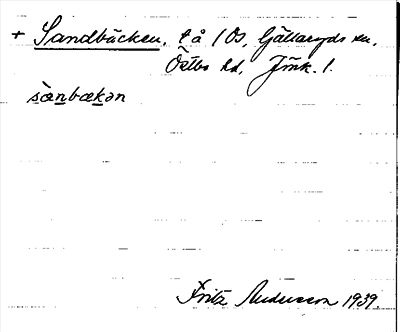 + Sandbäcken, t å 1 Os, Gällaryds sn,
Östbo hd, Jönk. l.
sànbækən
Fritz Andersson 1939.